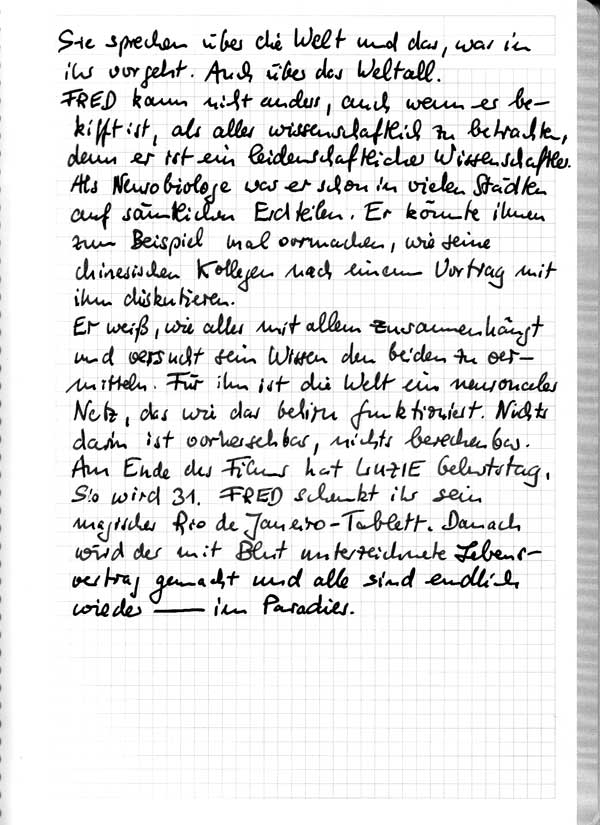 Sie sprechen über die Welt und das, was in
ihr vorgeht. Auch über das Weltall.
FRED kann nicht anders, auch wenn er be-
kifft ist, als alles wissenschaftlich zu betrachten,
denn er ist ein leidenschaftlicher Wissenschaftler.
Als Neurobiologe war er schon in vielen Städten
auf sämtlichen Erdteilen. Er könnte ihnen
zum Beispiel mal vormachen, wie seine
chinesischen Kollegen nach einem Vortrag mit
ihm diskutieren.
Er weiß, wie alles mit allem zusammenhängt
und versucht sein Wissen den beiden zu ver-
mitteln. Für ihn ist die Welt ein neuronales
Netz, das wie das Gehirn funktioniert. Nichts
darin ist vorhersehbar, nichts berechenbar.
Am Ende des Films hat LUZIE Geburtstag.
Sie wird 31. FRED schenkt ihr sein
magisches Rio de Janeiro-Tablett. Danach
wird der mit Blut unterzeichnete Lebens-
vertrag gemacht und alle sind endlich
wieder — im Paradies.